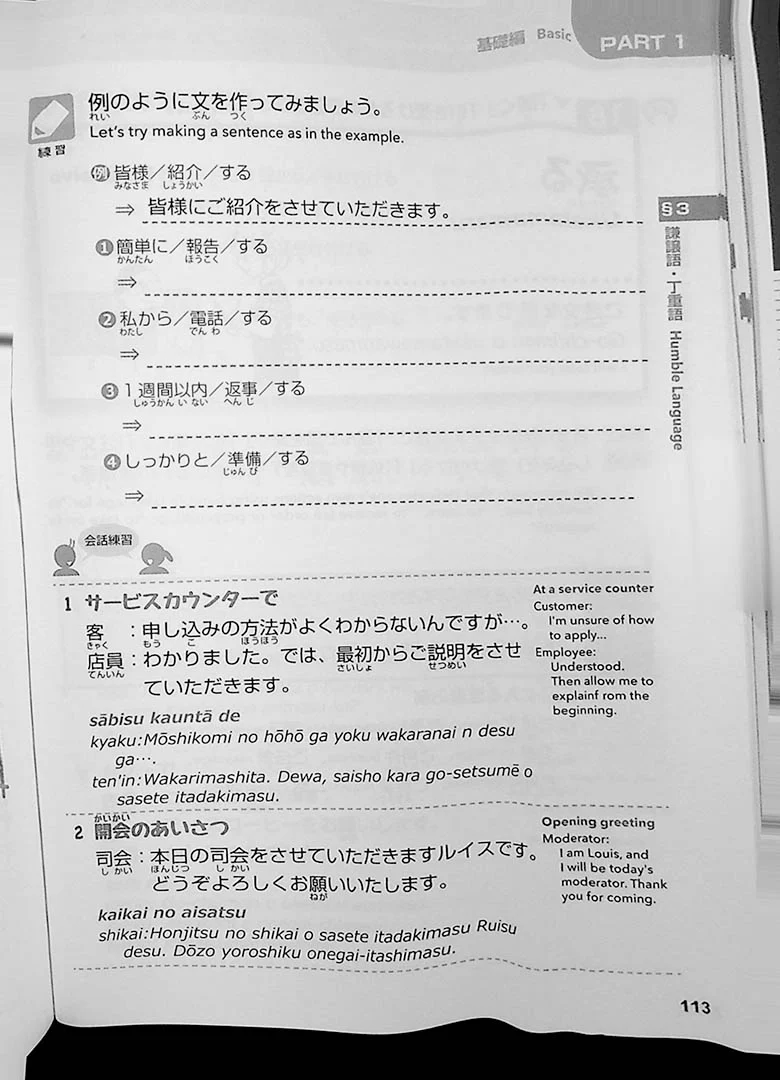 基礎編 Basic PART 1
例のように文を作ってみましょう。
れい ぶん つく
Let's try making a sentence as in the example.
練習
例 皆様／紹介／する
みなさま しょうかい
⇒ 皆様にご紹介をさせていただきます。
❶簡単に／報告／する
かんたん ほうこく
⇒
❷私から／電話／する
わたし でんわ
⇒
❸1週間以内／返事／する
しゅうかん い ない へん じ
⇒
❹しっかりと／準備／する
じゅん び
⇒
§3
謙譲語・丁重語 Humble Language
会話練習
1 サービスカウンターで
客 ：申し込みの方法がよくわからないんですが…。
きゃく もう こ ほうほう
店員：わかりました。では、最初からご説明をさせ
てんいん さいしょ せつめい
ていただきます。
sābisu kauntā de
kyaku:Mōshikomi no hōhō ga yoku wakaranai n desu
ga….
ten'in:Wakarimashita. Dewa, saisho kara go-setsumē o
sasete itadakimasu.
At a service counter
Customer:
I'm unsure of how
to apply...
Employee:
Understood.
Then allow me to
explainf rom the
beginning.
かいかい
2 開会のあいさつ
司会：本日の司会をさせていただきますルイスです。
し かい ほんじつ し かい
どうぞよろしくお願いいたします。
ねが
kaikai no aisatsu
shikai:Honjitsu no shikai o sasete itadakimasu Ruisu
desu. Dōzo yoroshiku onegai-itashimasu.
Opening greeting
Moderator:
I am Louis, and
I will be today's
moderator. Thank
you for coming.
113